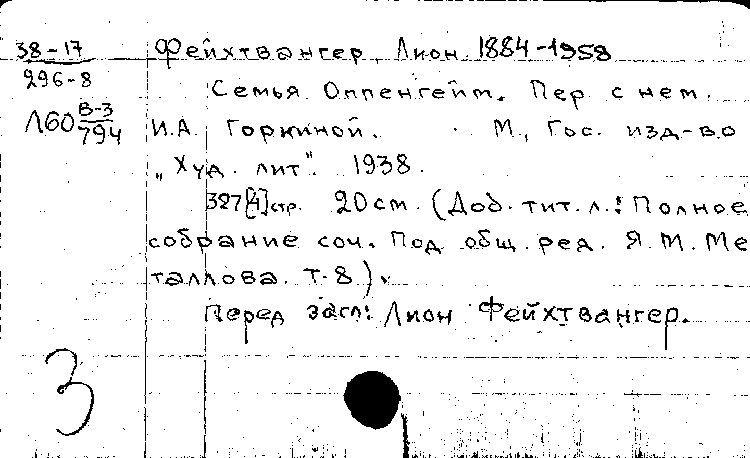 38-17
296-8
Л60 В-3
794
Фейхтвангер, Лион. 1884-1958
Семья Оппенгейм. Пер. с нем.
И.А. Горкиной. М., Гос. изд-во
„Худ. лит". 1938.
327[4]стр. 20см. (Доб. тит. л.: Полное
собрание соч. Под общ. ред. Я.М. Ме
таллова. Т. 8).
Перед загл: Лион Фейхтвангер.
3